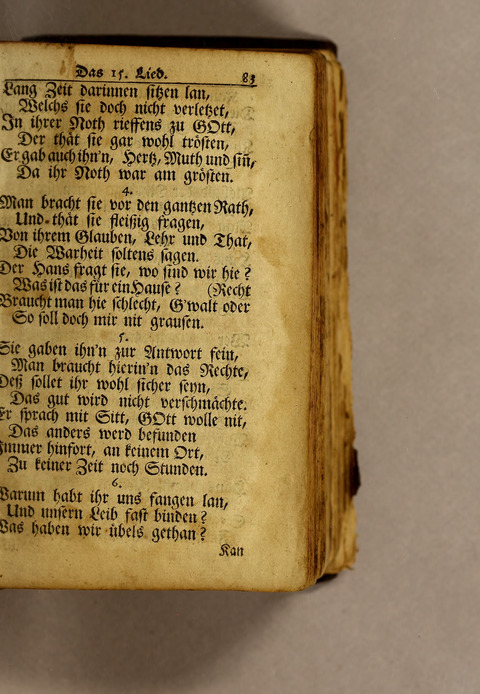 Das 15. Lied. 83
Lang Zeit darinnen sitzen lan,
Welchs sie doch nicht verletzet,
In ihrer Noth rieffens zu GOtt,
Der thät sie gar wohl trösten,
Er gab auch ihn'n, Hertz, Muth und sin̄,
Da ihr Noth war am grösten.
4.
Man bracht sie vor den gantzen Rath,
Und thät sie fleißig fragen,
Von ihrem Glauben, Lehr und That,
Die Warheit soltens sagen.
Der Hans fragt sie, wo sind wir hie?
Was ist das für ein Hause? (Recht
Braucht man hie schlecht, G'walt oder
So soll doch mir nit grausen.
5.
Sie gaben ihn'n zur Antwort fein,
Man braucht hierin'n das Rechte,
Deß sollet ihr wohl sicher seyn,
Das gut wird nicht verschmächte.
Er sprach mit Sitt, GOtt wolle nit,
Das anders werd befunden
Immer hinfort, an keinem Ort,
Zu keiner Zeit noch Stunden.
6.
Warum habt ihr uns fangen lan,
Und unsern Leib fast binden?
Was haben wir übels gethan?
Kan